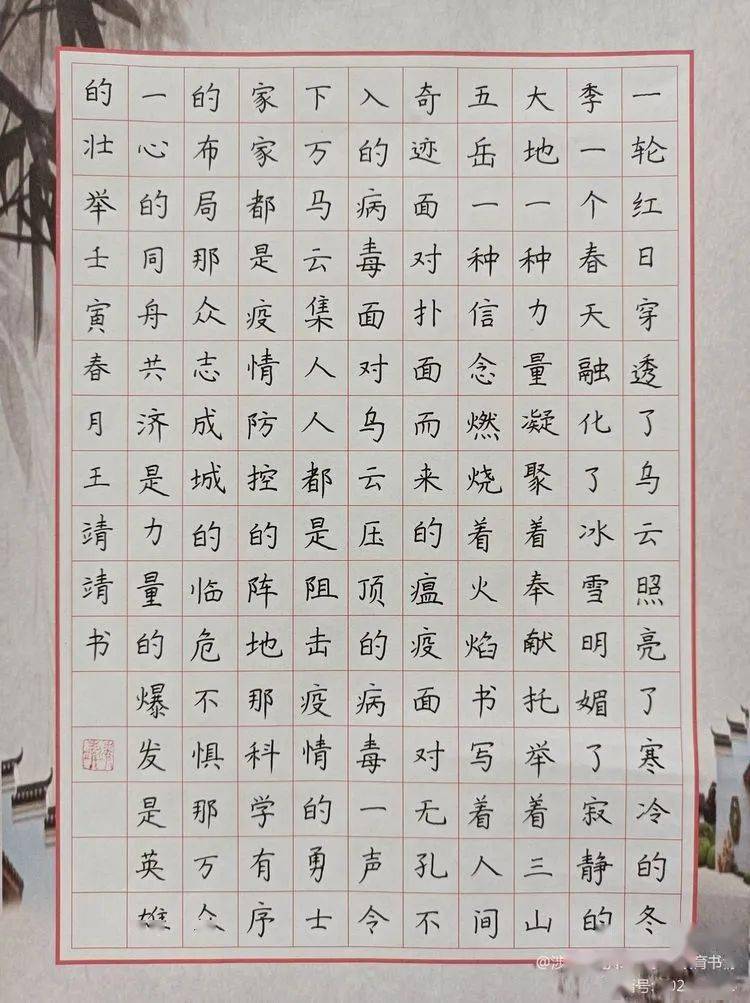 一轮红日穿透了乌云照亮了寒冷的冬
季一个春天融化了冰雪明媚了寂静的
大地一种力量凝聚着奉献托举着三山
五岳一种信念燃烧着火焰书写着人间
奇迹面对扑面而来的瘟疫面对无孔不
入的病毒面对乌云压顶的病毒一声令
下万马云集人人都是阻击疫情的勇士
家家都是疫情防控的阵地那科学有序
的布局那众志成城的临危不惧那万众
一心的同舟共济是力量的爆发是英雄
的壮举壬寅春月王靖靖书